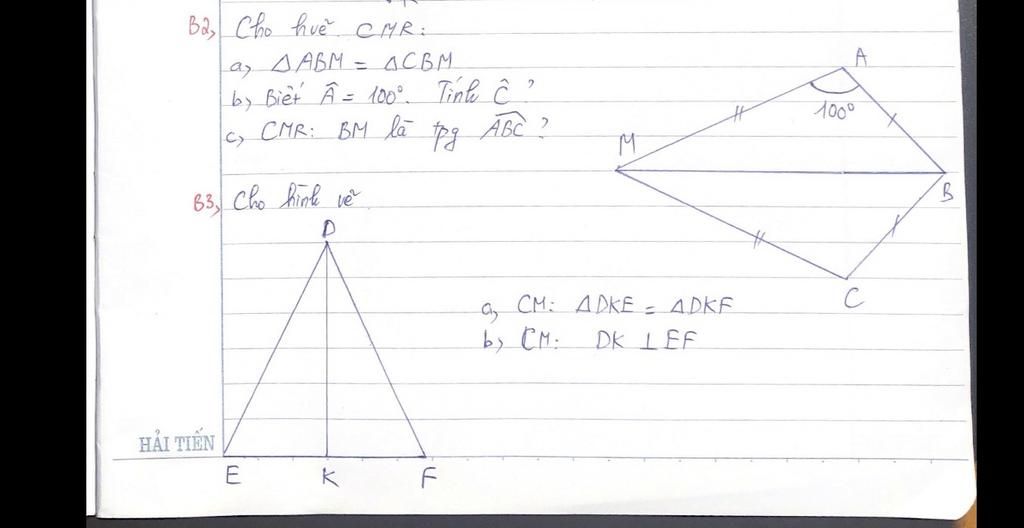 B2, Cho hvẽ. CMR:
a, ΔABM = ΔCBM
b, Biết Â = 100°. Tính Ĉ ?
c, CMR: BM là tpg ABC ?
A
100°
M
B
C
B3, Cho hình vẽ
D
a, CM: ΔDKE = ΔDKF
b, CM: DK ⊥ EF
HẢI TIẾN
E K F